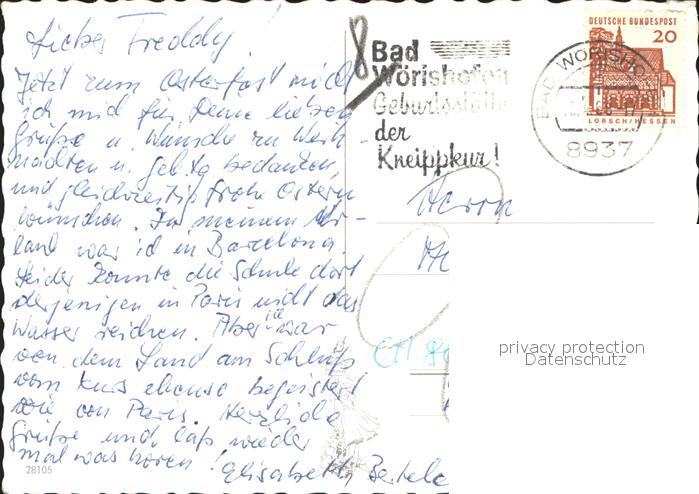 Lieber Freddy!
Jetzt zum Osterfest möcht
ich mich für Deine lieben
Grüße u. Wünsche zu Weih-
nachten u. gebtg bedanken,
und gleichzeitig frohe Ostern
wünschen. In meinem Ur-
laub war ich in Barcelona.
Leider konnte die Schule dort
derjenigen in Paris nicht das
Wasser reichen. Aber ich war
von dem Land am Schluß
vom Kurs ebenso begeistert
wie von Paris. Herzliche
Grüße und laß wieder
mal was hören!
Elisabeth Bertele
28105
8
Bad
Wörishofen
Geburtsstätte
der
Kneippkur!
BAD WÖRISHO
8937
DEUTSCHE BUNDESPOST
20
LORSCH/HESSEN
Herrn
CH
privacy protection
Datenschutz